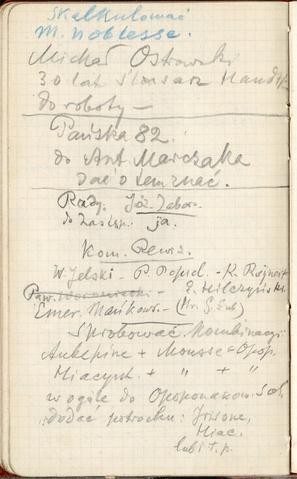 Skalkulować
M. Noblesse.
Michał Ostrowski
30 lat ślusarz
do roboty —
Pańska 82.
do Ant. Marczaka
dać o tem znać.
Rady. Józ. Zabor.
do Zastęp. ja.
Kom. Rewiz.
W. Jelski - P. Popiel. - K. Rojnert
E. Wilczyński
Emer. Mańkows. -
Spróbować Kombinacyi
+ Mousse + Opop.
Hiacynt. + " + "
w ogóle do Opoponakow.
dodać potrochu: Irisone,
Hiac.
lub i t. p.